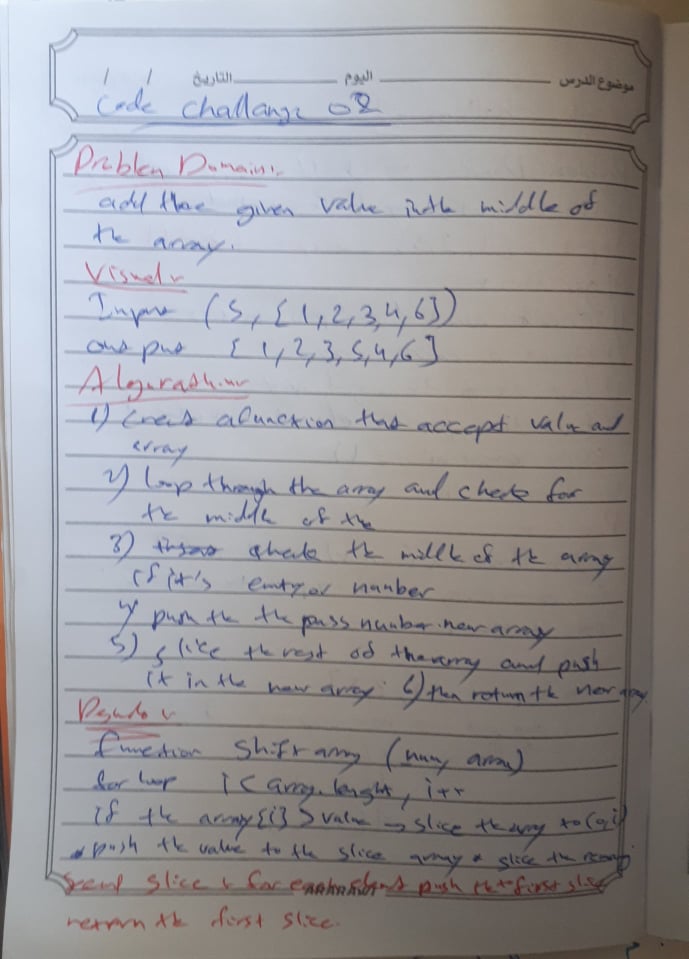 موضوع الدرس اليوم التاريخ / /
Code challange 02
Problem Domain:-
add the given value into middle of
the array.
Visual
Input (5, [1,2,3,4,6])
output [1,2,3,5,4,6]
Algorathim
1) creat a function that accept value and
array
2) loop through the array and check for
the middle of the
3) check the middle of the array
if it's or number
4) push the the pass number new array
5) slice the rest of the array and push
it in the new array 6) then return the new array
function shift array (num, array)
for loop i < array.lenght, i++
if the array[i] > value → slice the array to (0,i)
push the value to the slice array * slice the
slice for push the first slice
return the first slice.